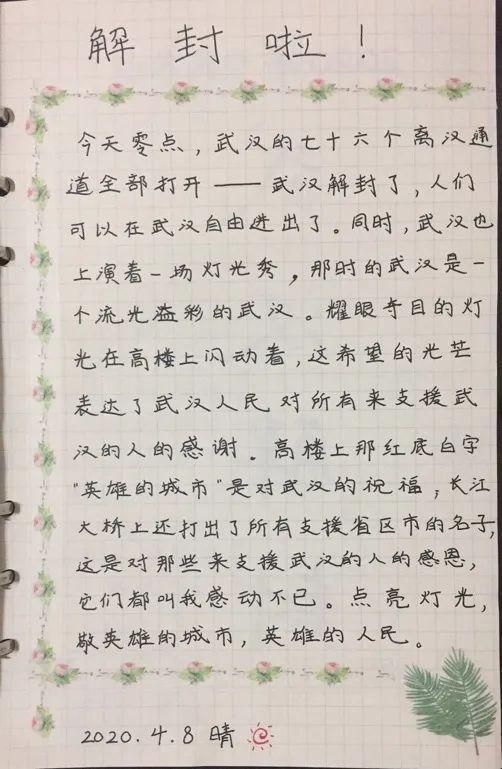 解封啦！
今天零点，武汉的七十六个离汉通
道全部打开——武汉解封了，人们
可以在武汉自由进出了。同时，武汉也
上演着一场灯光秀，那时的武汉是一
个流光溢彩的武汉。耀眼夺目的灯
光在高楼上闪动着，这希望的光芒
表达了武汉人民对所有来支援武
汉的人的感谢。高楼上那红底白字
"英雄的城市"是对武汉的祝福，长江
大桥上还打出了所有支援省区市的名子，
这是对那些来支援武汉的人的感恩，
它们都叫我感动不已。点亮灯光，
敬英雄的城市，英雄的人民。
2020.4.8 晴